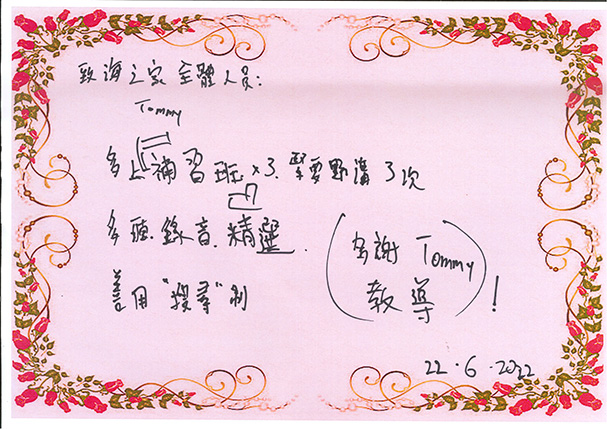 致海之家全體人員:
Tommy
多上補習班x3. 緊要野講3次
多聽.錄音.精選.
善用"搜尋"制
(多謝 Tommy
教導)!
22.6.2022